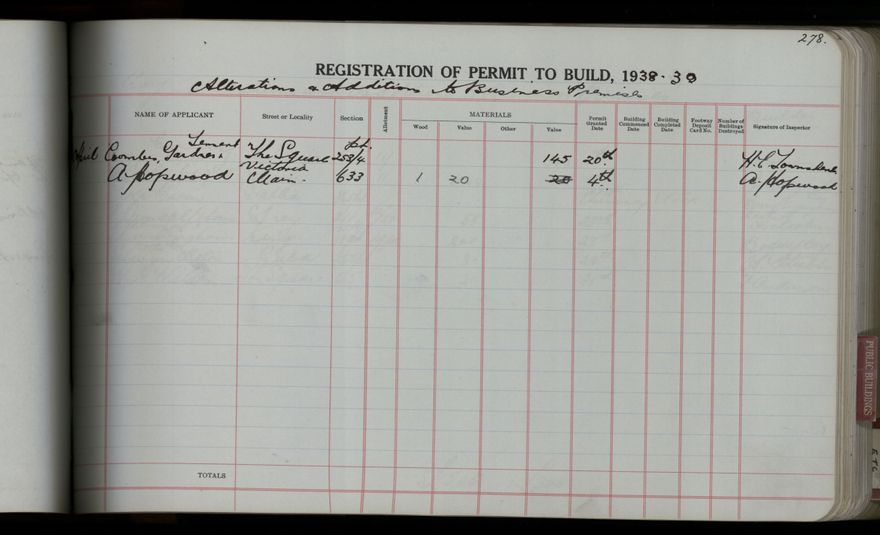 278.
REGISTRATION OF PERMIT TO BUILD, 1938-39
Alterations & Additions to Business Premises
NAME OF APPLICANT Street or Locality Section Allotment MATERIALS Permit Granted Date Building Commenced Date Building Completed Date Footway Deposit Card No. Number of Buildings Destroyed Signature of Inspector
Wood Value Other Value
Coombes, Gardner & The Square 258/4 pt. 145 20th
A Hopwood Victoria Main. 633 1 20 20 4th A. Hopwood
TOTALS
PUBLIC BUILDINGS
ETC